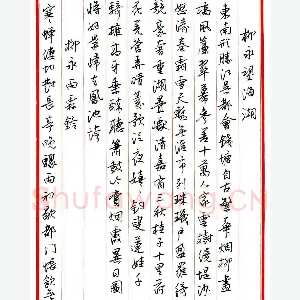 柳永望海潮
東南形勝江吴都會錢塘自古繁華烟柳畫
橋風簾翠幕參差十萬人家雲樹繞堤沙
怒濤卷霜雪天塹無涯市列珠璣户盈羅綺
競豪奢重湖疊巘清嘉有三秋桂子十里荷
花羌管弄晴菱歌泛夜嬉嬉釣叟蓮娃千
騎擁高牙乘醉聽簫鼓吟賞烟霞異日圖
將好景歸去鳳池誇
柳永雨霖鈴
寒蟬凄切對長亭晚驟雨初歇都門帳飲無